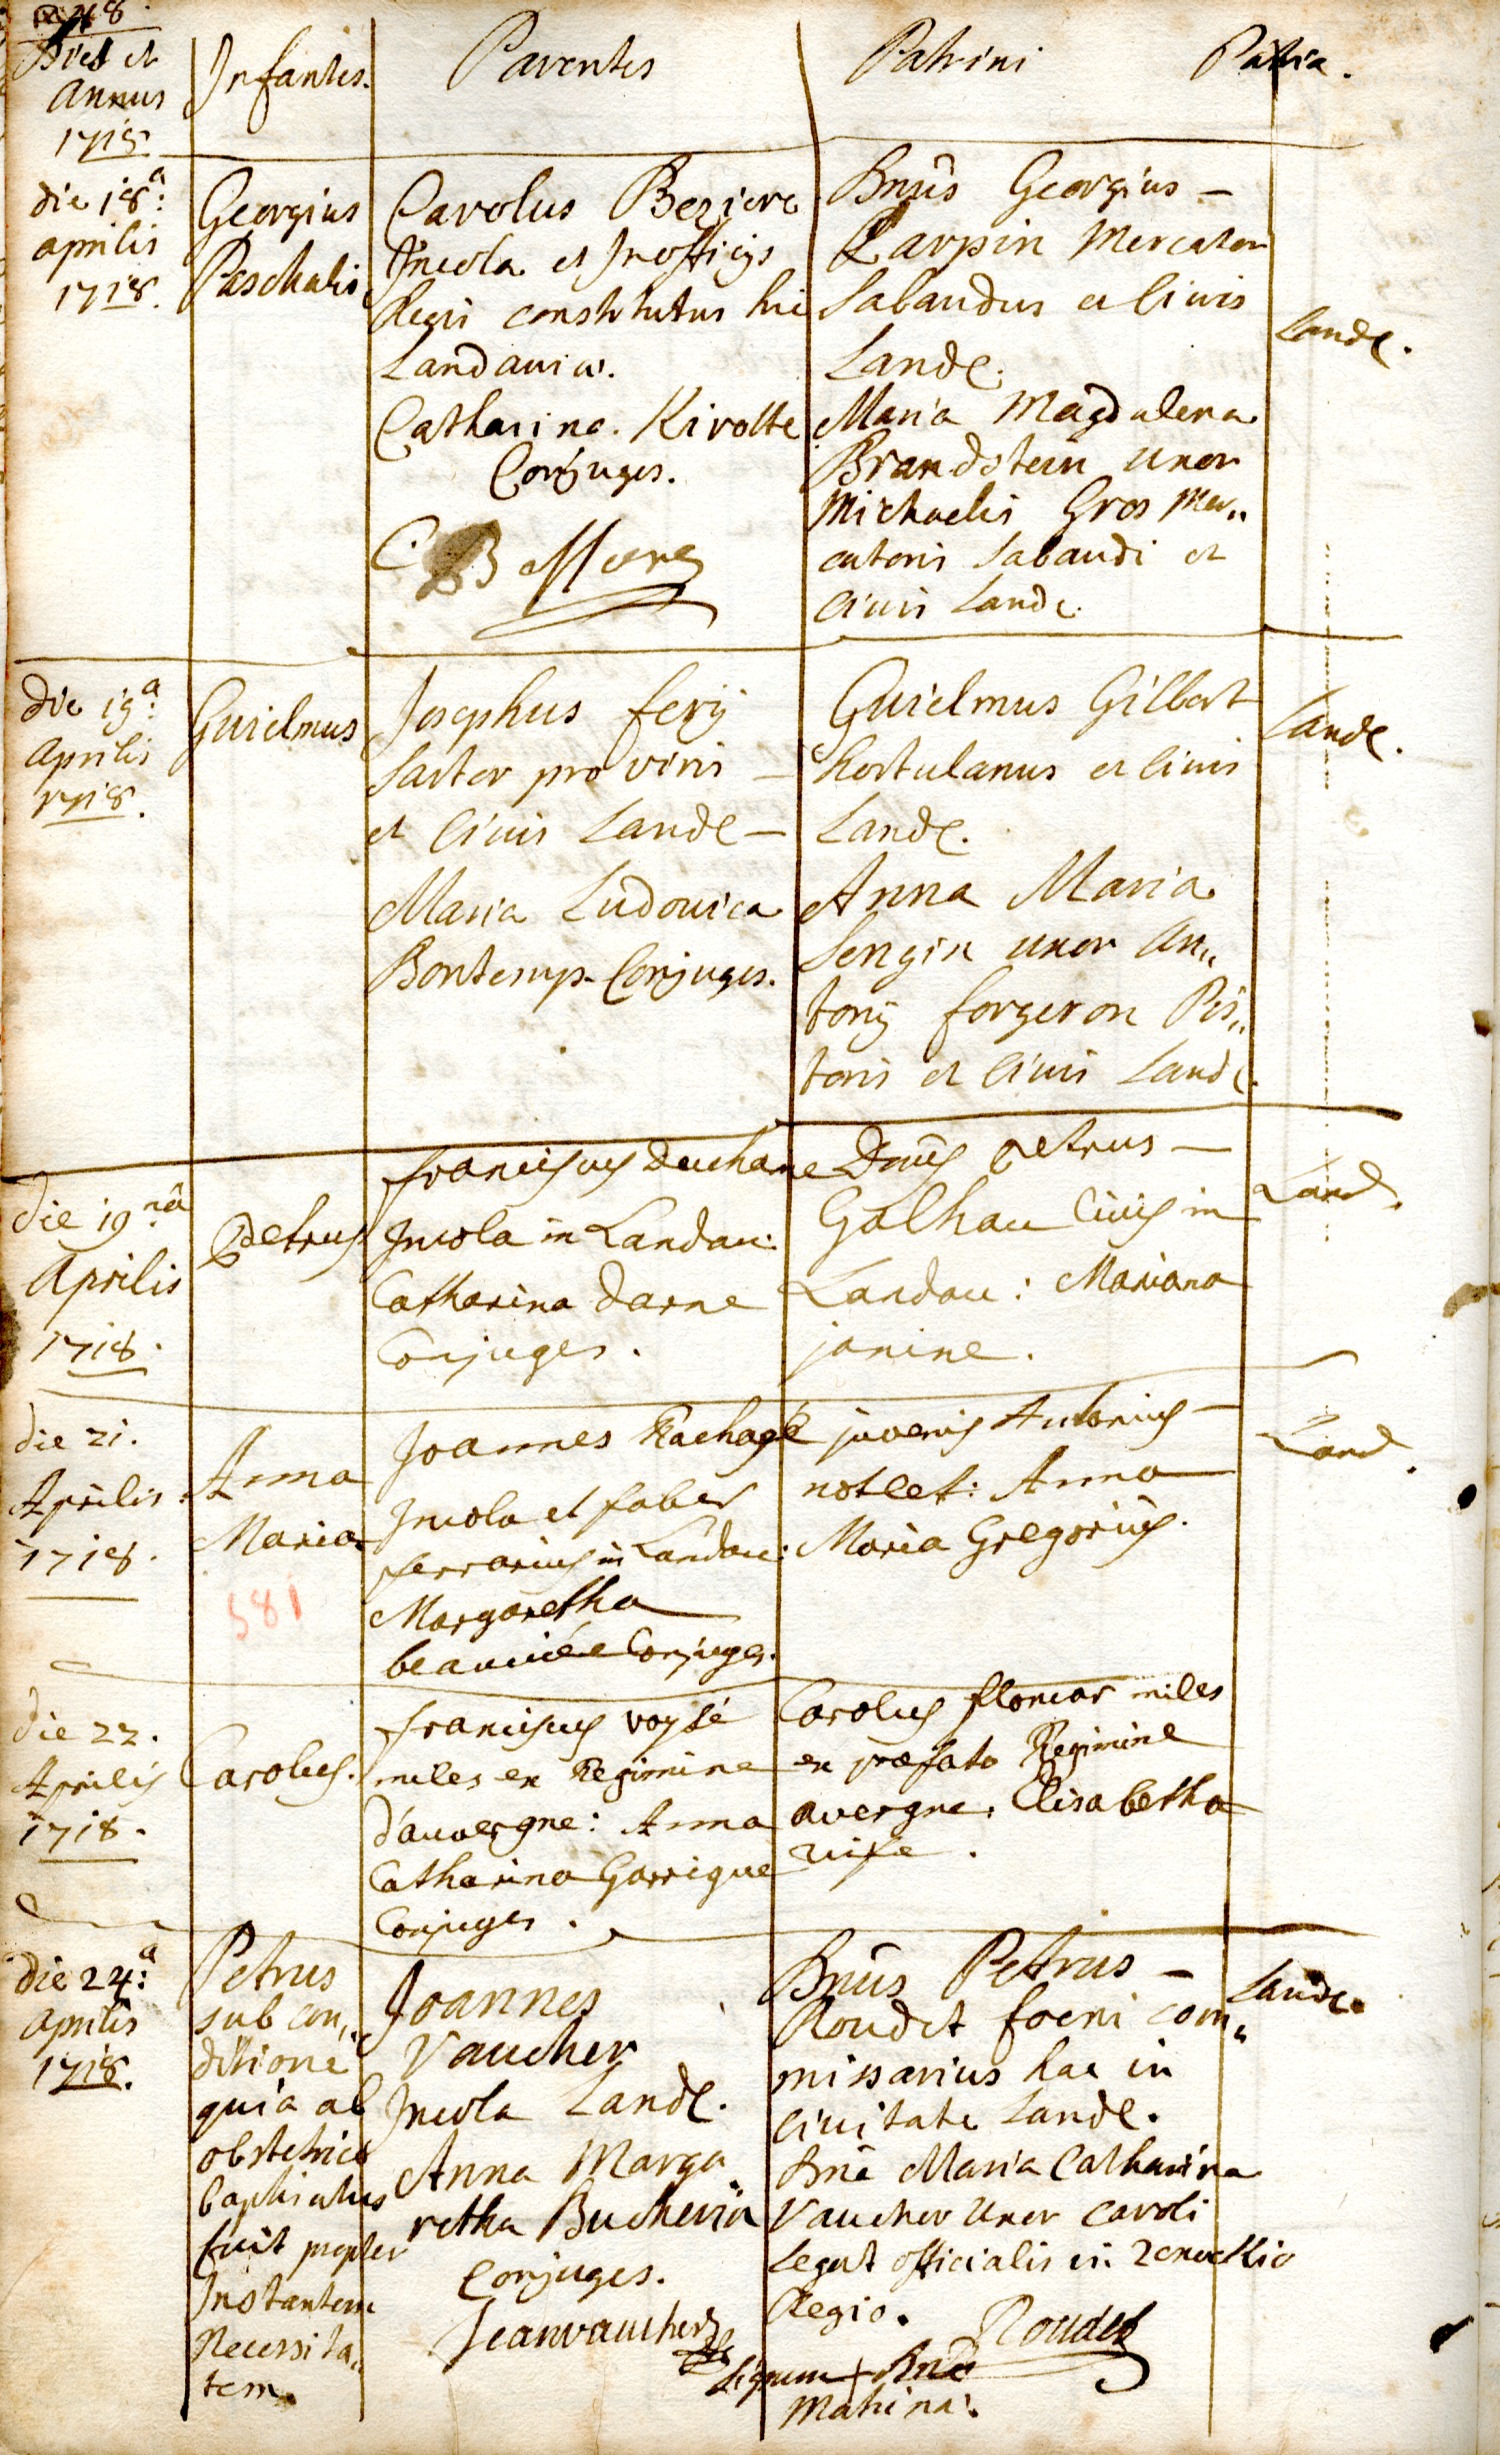 Dies et
Annus
1718
Infantes.
Parentes
Patrini
Patria.
die 18a:
aprilis
1718.
Georgius
Paschalis
Carolus Beziere
Incola et In officijs
Regis constitutus hic
Landaviæ.
Catharina Kirolte
Conjuges.
C
Dnus Georgius –
Carpin Mercator
Sabaudus et Civis
Landę.
Maria Magdalena
Brandstein uxor
Michaelis Gros Mer„
catoris Sabaudi et
Civis Landę.
Landę.
die 19a:
Aprilis
1718.
Guielmus
Josephus fery
Sartor pro viris –
et Civis Landę –
Maria Ludovica
Bontemps Conjuges.
Guielmus Gilbert
hortulanus et Civis
Landę.
Anna Maria
Sengin uxor An„
tonij forgeron Pis„
toris et Civis Landę.
Landę.
die 19na
Aprilis
1718.
Petrus
franciscus Duchane
Incola in Landau:
Catharina Darne
Conjuges.
Dnus Petrus –
Galhau Civis in
Landau: Mariana
janine.
Land.
die 21.
Aprilis
1718.
Anna
Maria
581
Joannes Rachagé
Incola et faber
ferrarius in Landau:
Margaretha
Conjuges.
juvenis Antonius –
notlet: Anna
Maria Gregorius.
Land.
die 22.
Aprilis
1718.
Carolus.
franciscus voysé
miles ex Regimine
d'auvergne: Anna
Catharina Garrigue
Conjuges.
Carolus floncar miles
ex præfato Regimine
avergne. Elisabetha
die 24a:
aprilis
1718.
Petrus
sub con„
ditione
quia ab
obstetrice
baptizatus
fuit propter
Instantem
Necessita„
tem.
Joannes
Vaucher
Incola Landę.
Anna Marga
retha Bucherin
Conjuges.
Jeanvaucher
Dnus Petrus –
Roudet foeni com„
missarius hac in
Civitate Landę.
Dna Maria Catharina
Vaucher Uxor Caroli
Legat officialis in
Regio.
Roudet
Signum + Dnæ
Matrinæ.
Landę.